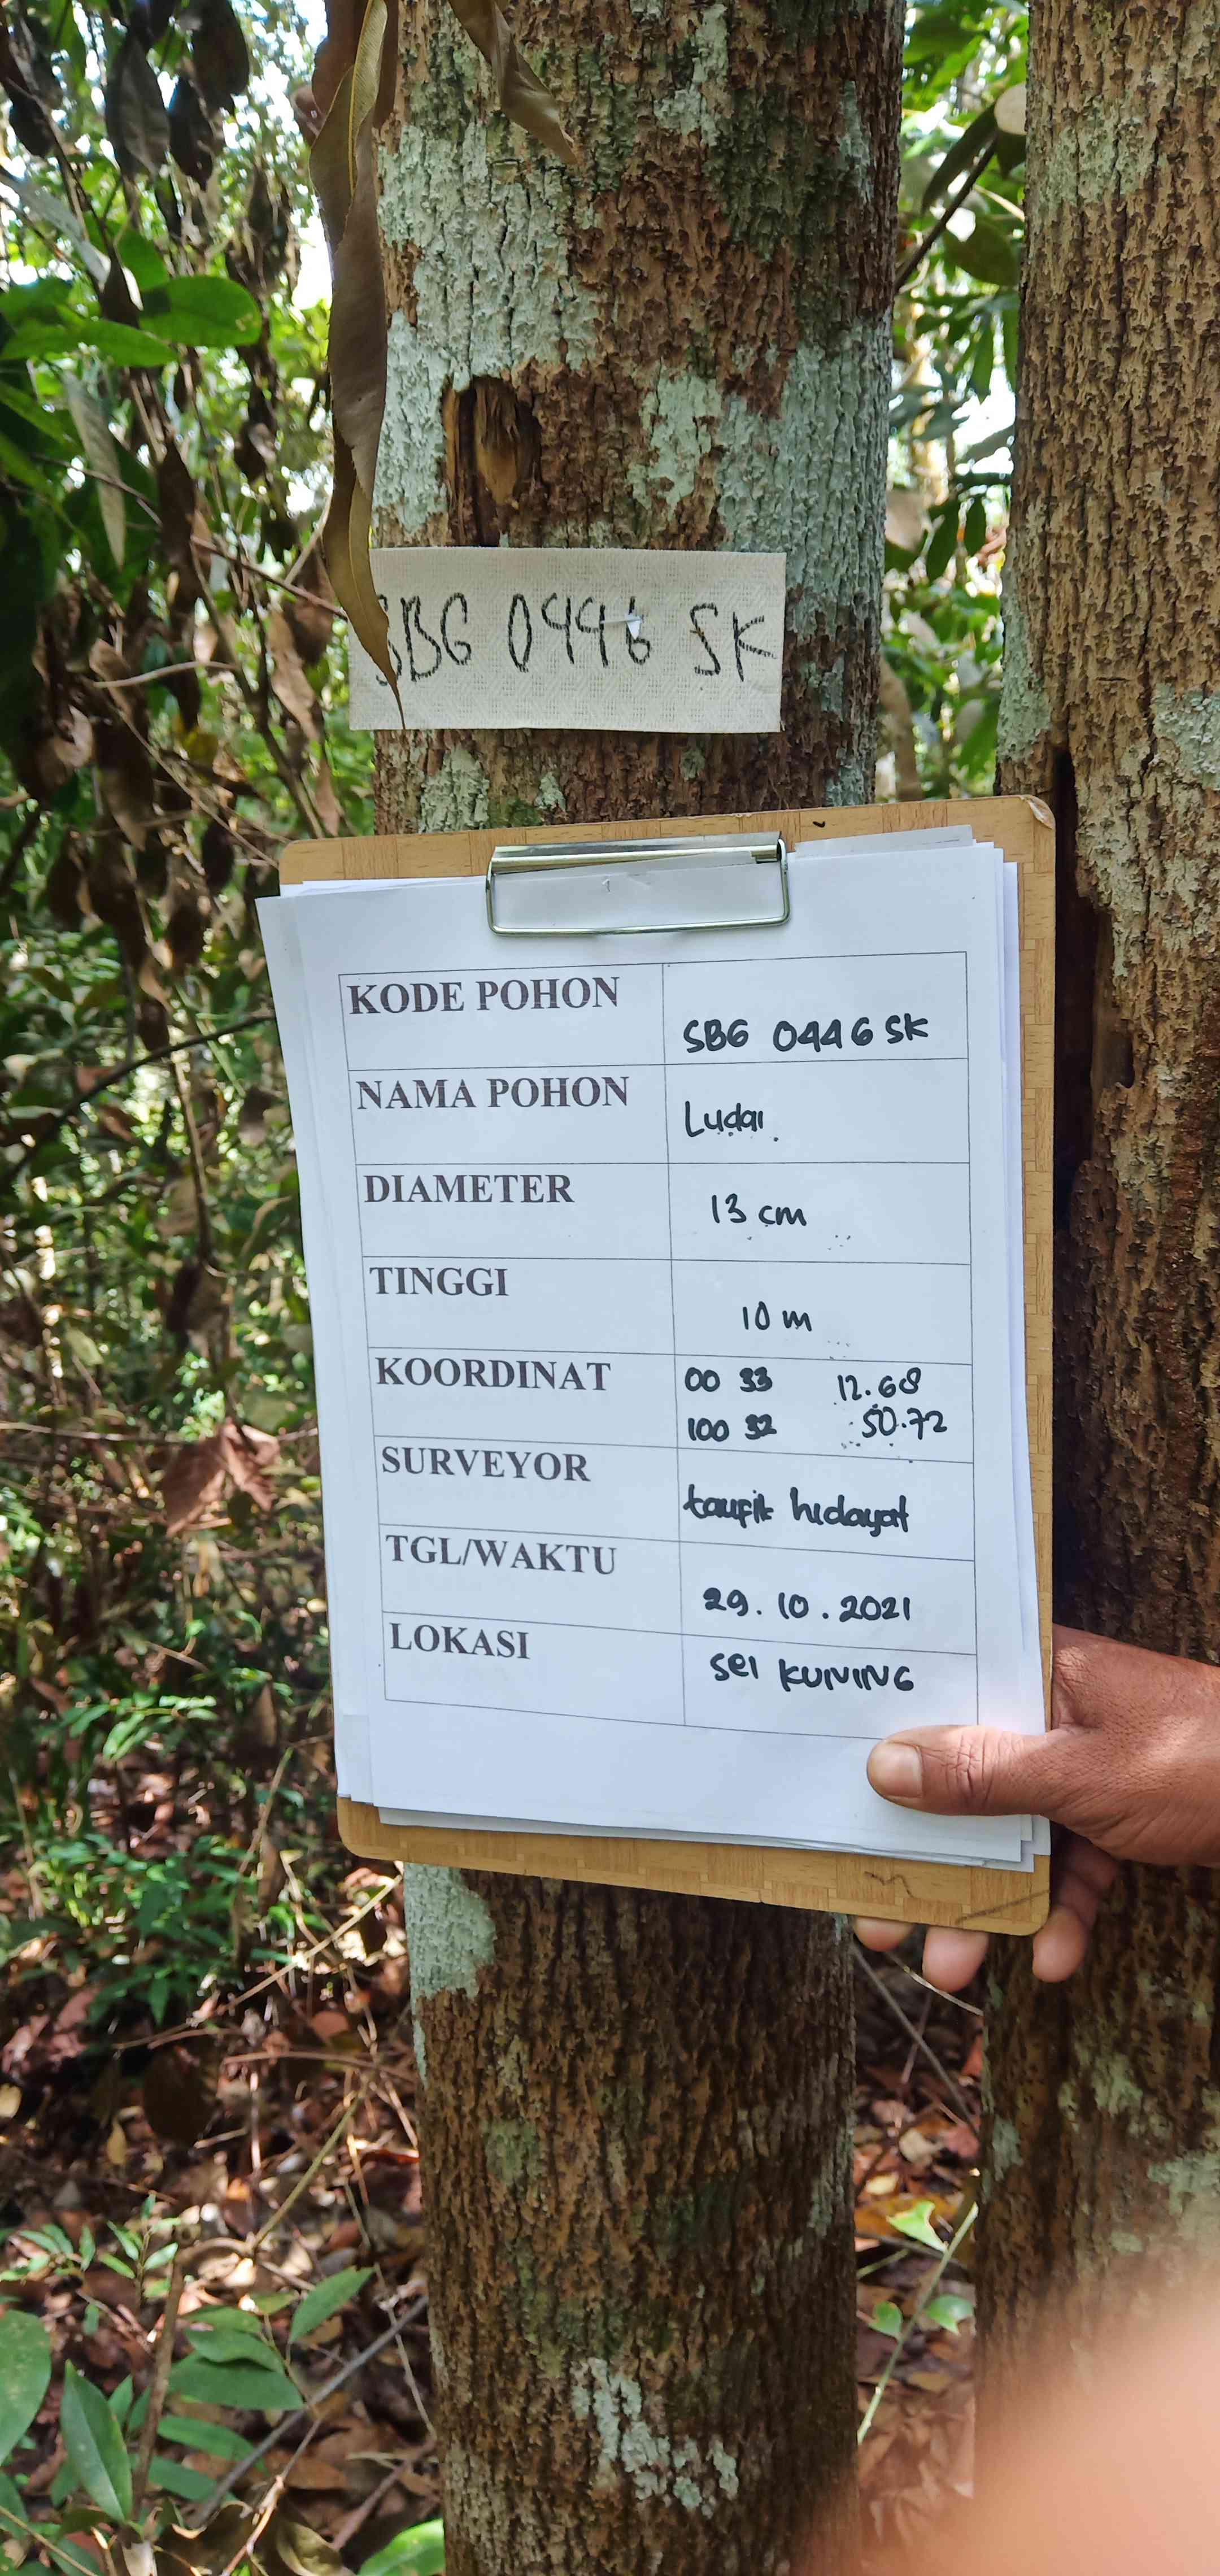 SBG 0446 SK
KODE POHON
SBG 0446 SK
NAMA POHON
Ludai
DIAMETER
13 cm
TINGGI
10 m
KOORDINAT
00 33 12.68
100 32 50.72
SURVEYOR
taufik hidayat
TGL/WAKTU
29.10.2021
LOKASI
SEI KUNING